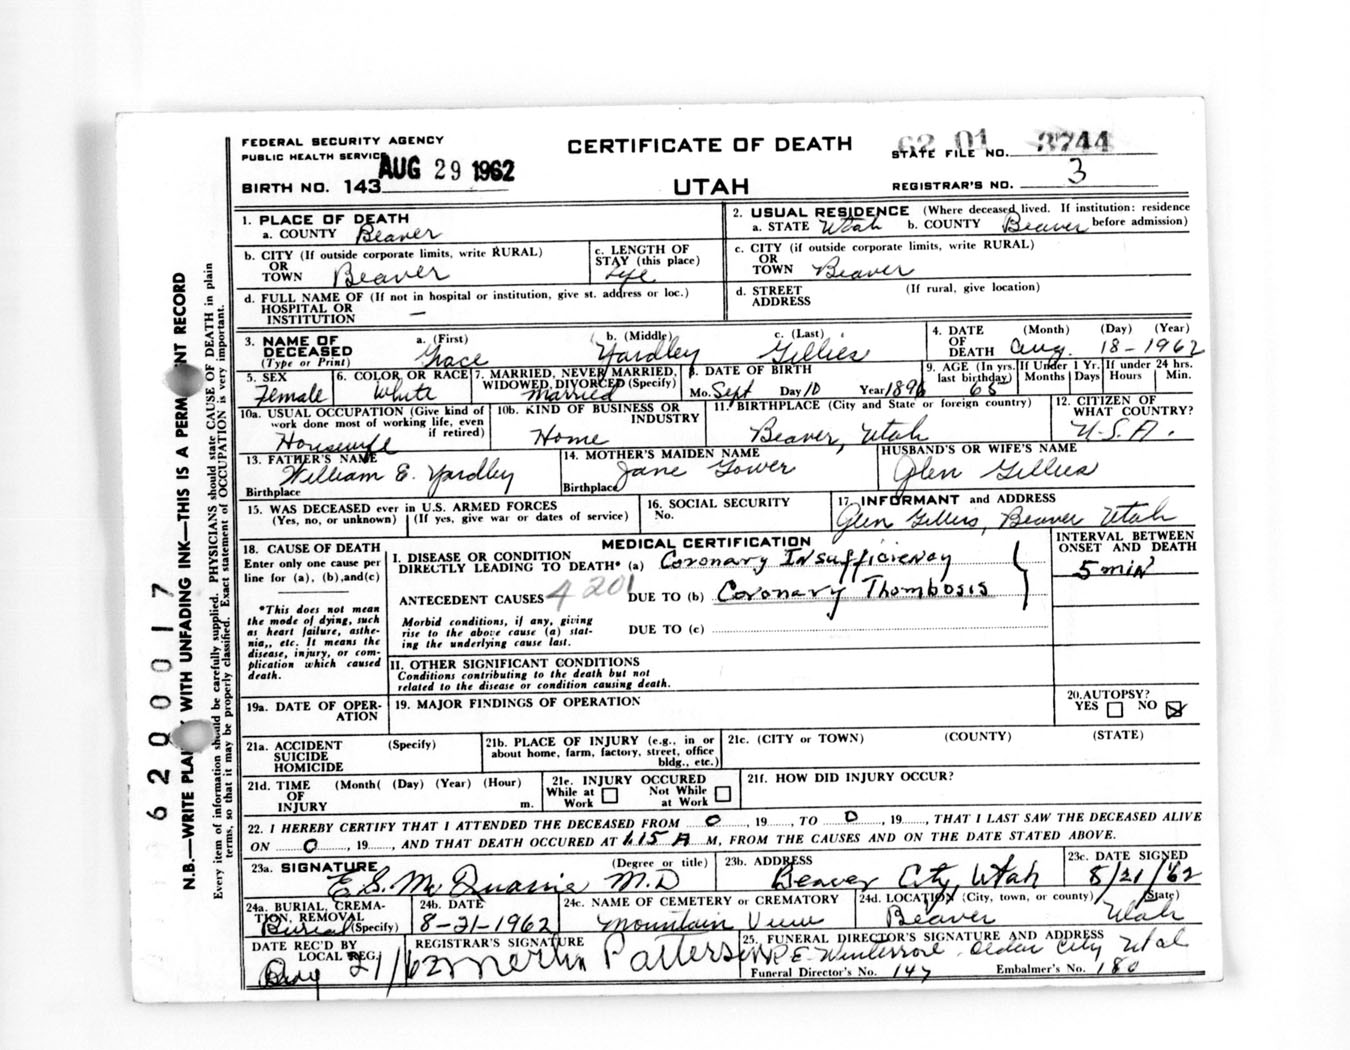 FEDERAL SECURITY AGENCY
PUBLIC HEALTH SERVICE
AUG 29 1962
BIRTH NO. 143
CERTIFICATE OF DEATH
UTAH
62 01 3744
STATE FILE NO.
REGISTRAR'S NO. 3
1. PLACE OF DEATH
a. COUNTY Beaver
2. USUAL RESIDENCE (Where deceased lived. If institution: residence before admission)
a. STATE Utah b. COUNTY Beaver
b. CITY (If outside corporate limits, write RURAL)
OR
TOWN Beaver
c. LENGTH OF
STAY (this place)
Life
c. CITY (if outside corporate limits, write RURAL)
OR
TOWN Beaver
d. FULL NAME OF (If not in hospital or institution, give st. address or loc.)
HOSPITAL OR
INSTITUTION —
d. STREET (If rural, give location)
ADDRESS
3. NAME OF DECEASED
(Type or Print)
a. (First) b. (Middle) c. (Last)
Grace Yardley Gillies
4. DATE OF DEATH (Month) (Day) (Year)
Aug. 18-1962
5. SEX
Female
6. COLOR OR RACE
White
7. MARRIED, NEVER MARRIED,
WIDOWED, DIVORCED (Specify)
Married
8. DATE OF BIRTH
Mo. Sept Day 10 Year 1896
9. AGE (In yrs. last birthday)
65
If Under 1 Yr.
Months Days
If under 24 hrs.
Hours Min.
10a. USUAL OCCUPATION (Give kind of
work done most of working life, even
if retired)
Housewife
10b. KIND OF BUSINESS OR
INDUSTRY
Home
11. BIRTHPLACE (City and State or foreign country)
Beaver, Utah
12. CITIZEN OF
WHAT COUNTRY?
U.S.A.
13. FATHER'S NAME
William E. Yardley
Birthplace
14. MOTHER'S MAIDEN NAME
Jane Gower
Birthplace
HUSBAND'S OR WIFE'S NAME
Glen Gillies
15. WAS DECEASED ever in U.S. ARMED FORCES
(Yes, no, or unknown) (If yes, give war or dates of service)
16. SOCIAL SECURITY
No.
17. INFORMANT and ADDRESS
Glen Gillies, Beaver Utah
MEDICAL CERTIFICATION
INTERVAL BETWEEN
ONSET AND DEATH
18. CAUSE OF DEATH
Enter only one cause per
line for (a), (b), and (c)
*This does not mean
the mode of dying, such
as heart failure, asthe-
nia,, etc. It means the
disease, injury, or com-
plication which caused
death.
I. DISEASE OR CONDITION
DIRECTLY LEADING TO DEATH* (a) Coronary Insufficiency
5 min
ANTECEDENT CAUSES 4201 DUE TO (b) Coronary Thombosis
Morbid conditions, if any, giving
rise to the above cause (a) stat-
ing the underlying cause last.
DUE TO (c)
II. OTHER SIGNIFICANT CONDITIONS
Conditions contributing to the death but not
related to the disease or condition causing death.
19a. DATE OF OPER-
ATION
19. MAJOR FINDINGS OF OPERATION
20. AUTOPSY?
YES NO
21a. ACCIDENT (Specify)
SUICIDE
HOMICIDE
21b. PLACE OF INJURY (e.g., in or
about home, farm, factory, street, office
bldg., etc.)
21c. (CITY or TOWN) (COUNTY) (STATE)
21d. TIME (Month( (Day) (Year) (Hour)
OF
INJURY m.
21e. INJURY OCCURED
While at Work
Not While at Work
21f. HOW DID INJURY OCCUR?
22. I HEREBY CERTIFY THAT I ATTENDED THE DECEASED FROM 0, 19, TO 0, 19, THAT I LAST SAW THE DECEASED ALIVE
ON 0, 19, AND THAT DEATH OCCURED AT 1.15 A M, FROM THE CAUSES AND ON THE DATE STATED ABOVE.
23a. SIGNATURE (Degree or title)
E S. McQuarrie M.D
23b. ADDRESS
Beaver City, Utah
23c. DATE SIGNED
8/21/62
24a. BURIAL, CREMA-
TION, REMOVAL
(Specify)
Burial
24b. DATE
8-21-1962
24c. NAME OF CEMETERY or CREMATORY
Mountain View
24d. LOCATION (City, town, or county) (State)
Beaver Utah
DATE REC'D BY
LOCAL REG.
Aug 21/62
REGISTRAR'S SIGNATURE
Merlin Patterson
25. FUNERAL DIRECTOR'S SIGNATURE AND ADDRESS
Cedar City Utah
Funeral Director's No. 147 Embalmer's No. 180
N.B.—WRITE PLAINLY WITH UNFADING INK—THIS IS A PERMANENT RECORD
Every item of information should be carefully supplied. PHYSICIANS should state CAUSE OF DEATH in plain
terms, so that it may be properly classified. Exact statement of OCCUPATION is very important.
6200017